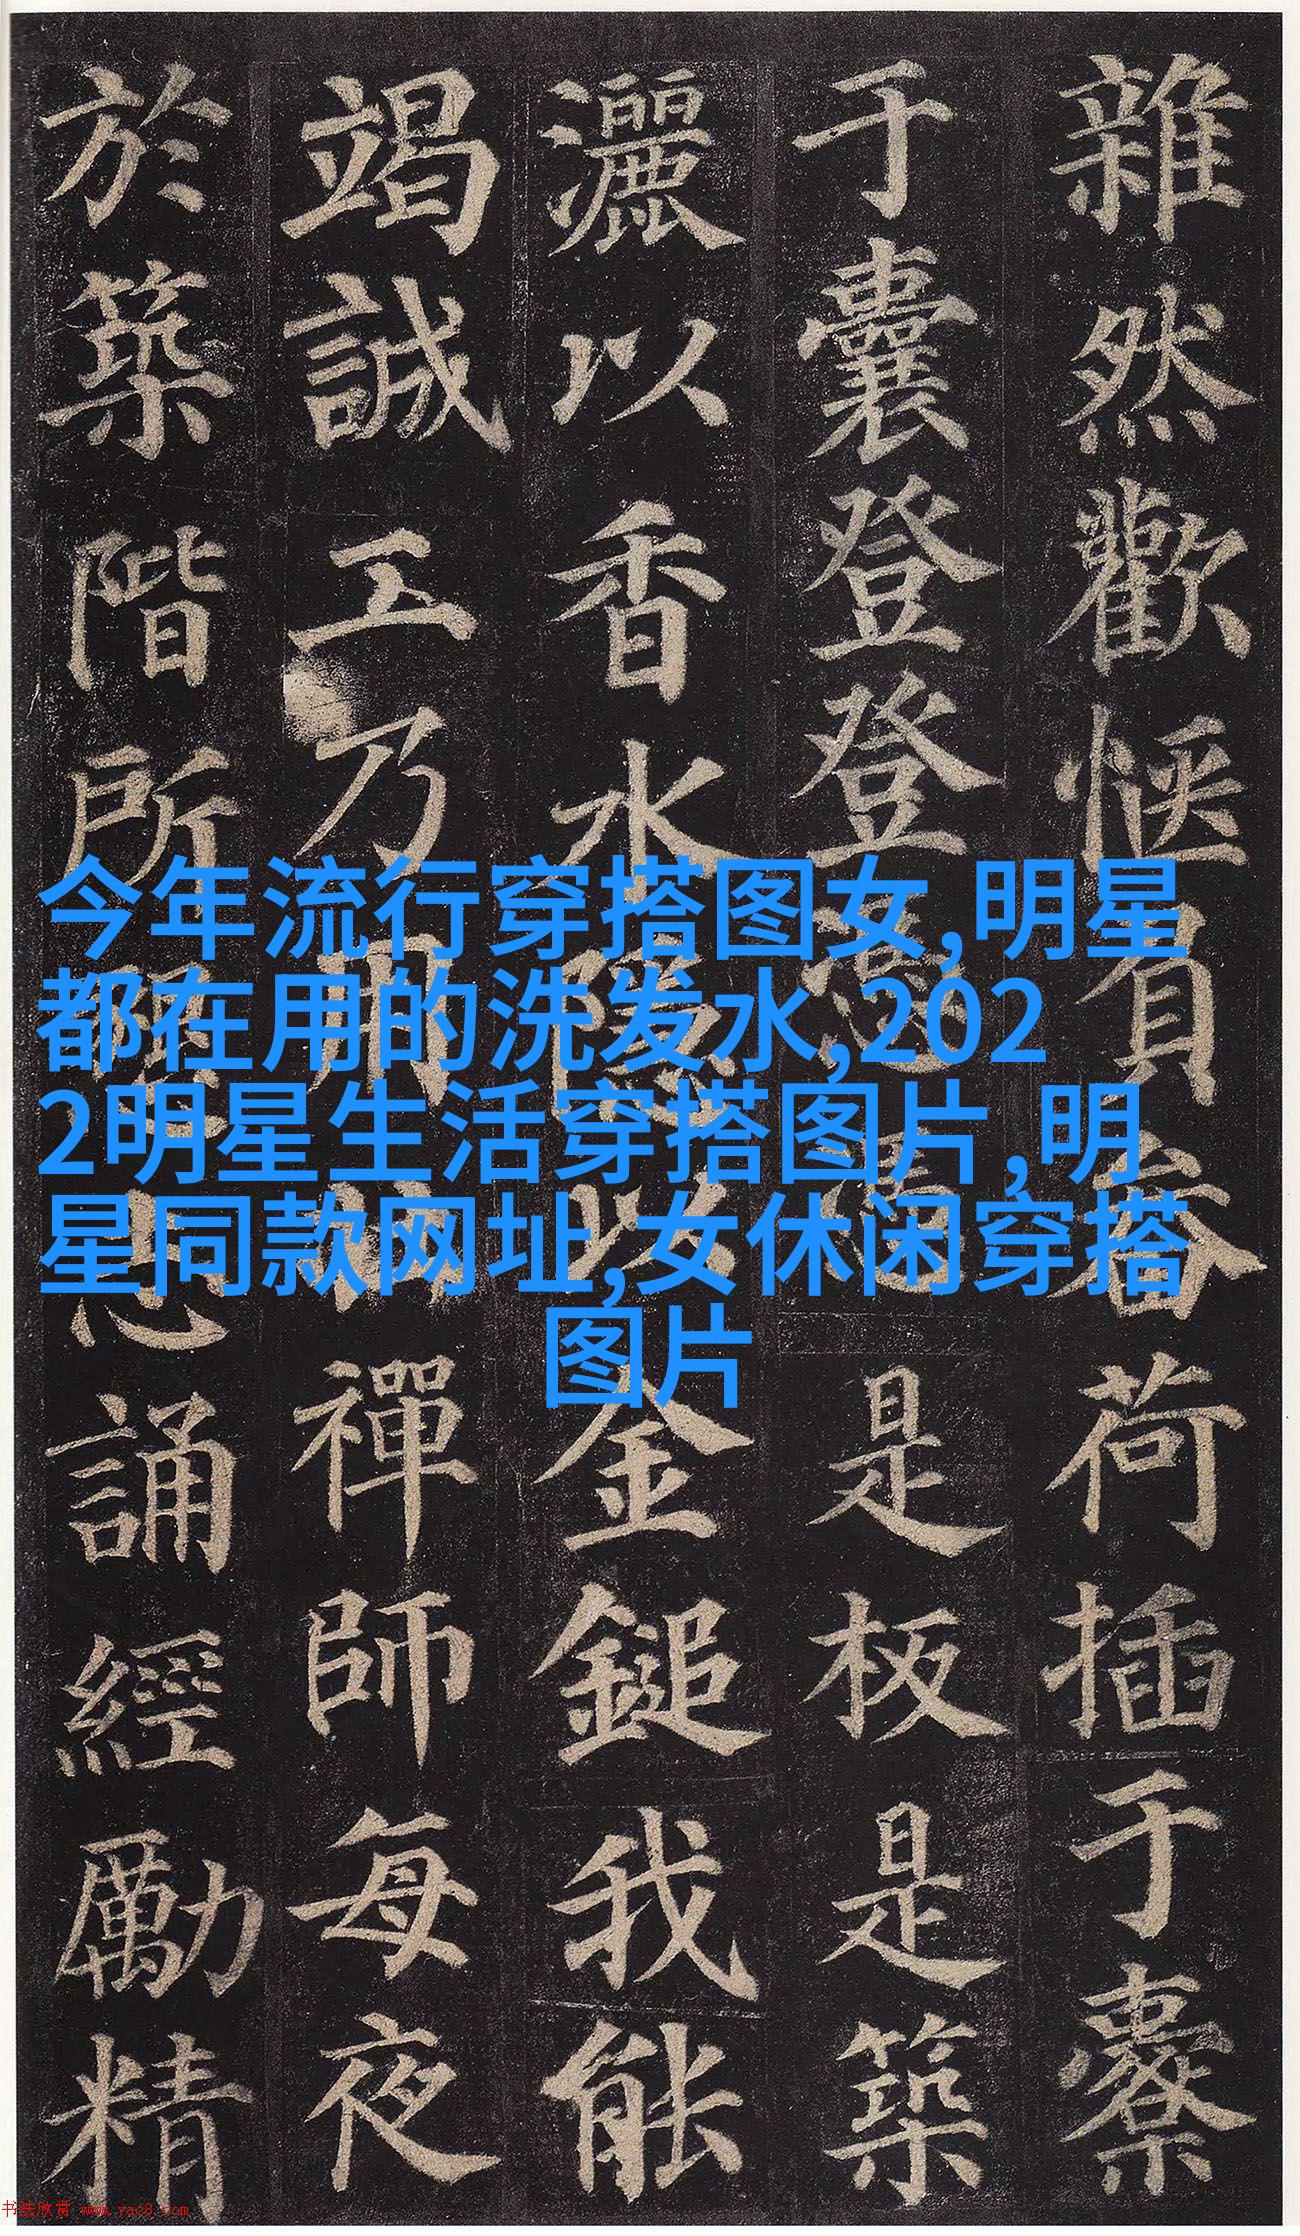 雜然歡愜負畚荷插于橐
于囊登登憑憑是板是築
灑以香水隱以金鎚我能
竭誠工乃用壯禪師每夜
於築階所懇志誦經勵精
今年流行穿搭图女,明星
都在用的洗发水,202
2明星生活穿搭图片,明
星同款网址,女休闲穿搭
图片
书法欣赏 www.yac8.com